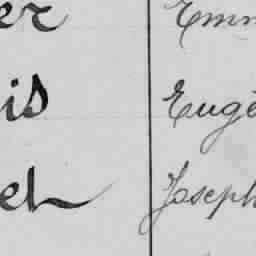 er Emm
is Eugè
el Joseph